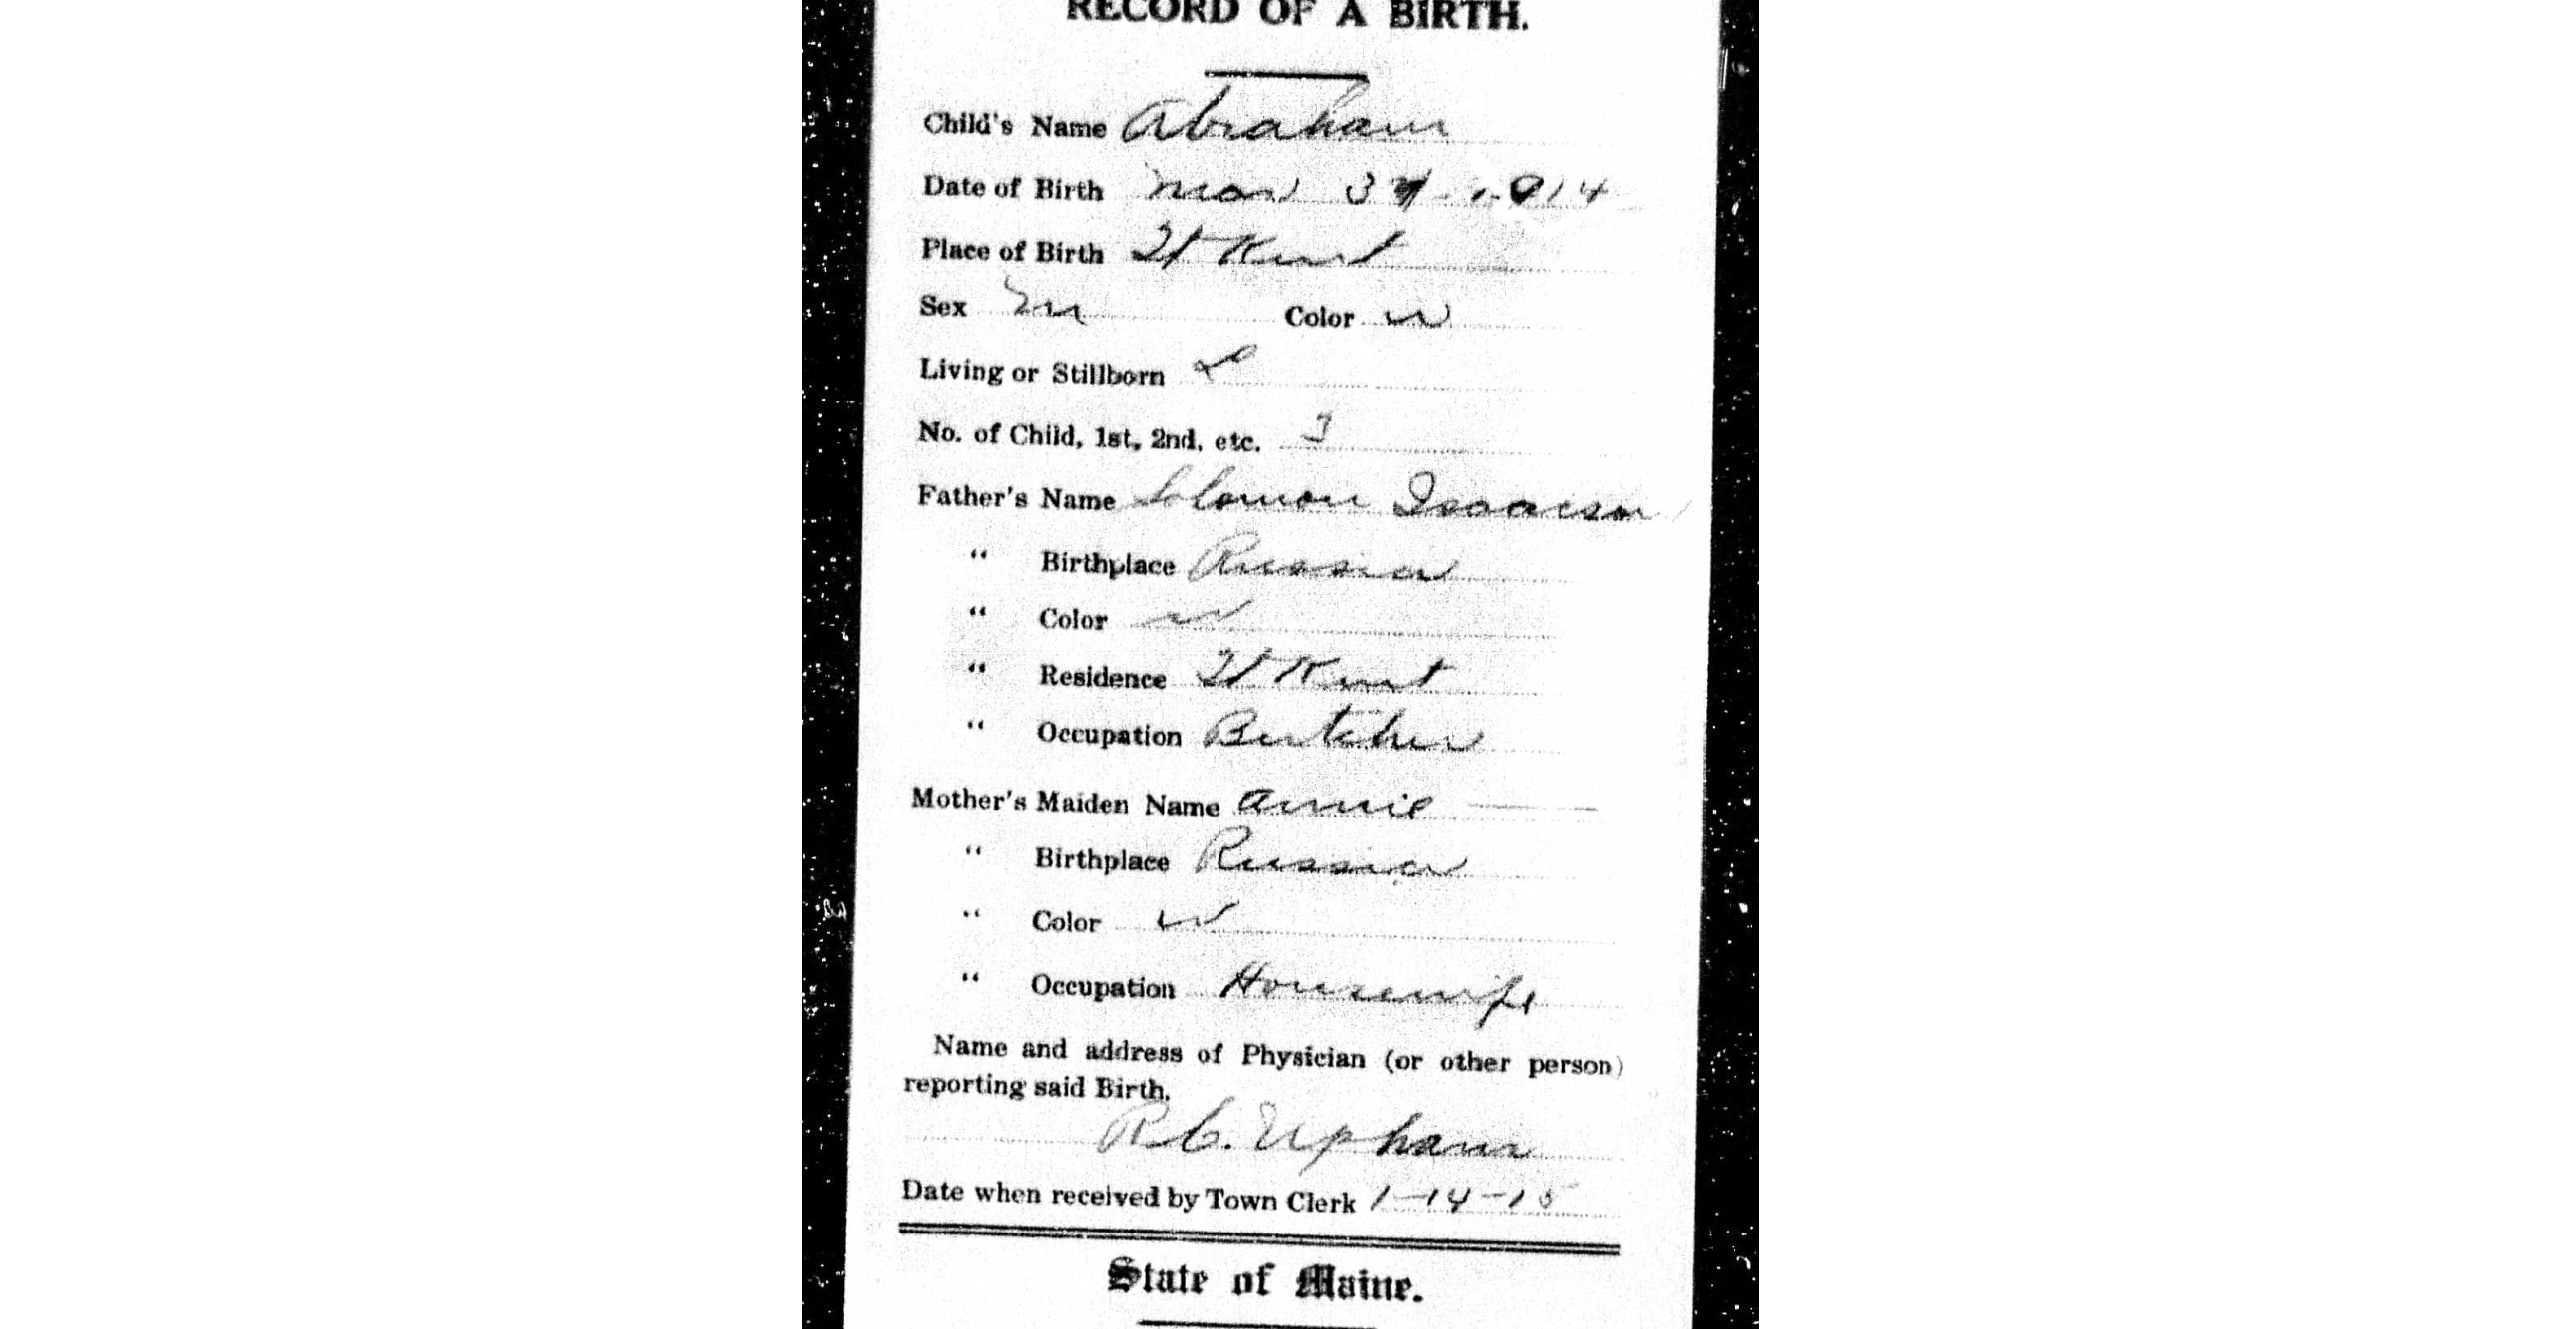 RECORD OF A BIRTH.
Child's Name Abraham
Date of Birth 1914
Place of Birth Ft Kent
Sex M Color W
Living or Stillborn L
No. of Child, 1st, 2nd, etc. 3
Father's Name Solomon Isaacson
" Birthplace Russia
" Color W
" Residence Ft Kent
" Occupation Butcher
Mother's Maiden Name Annie —
" Birthplace Russia
" Color W
" Occupation Housewife
Name and address of Physician (or other person)
reporting said Birth.
R. C. Upham
Date when received by Town Clerk 1-14-15
State of Maine.